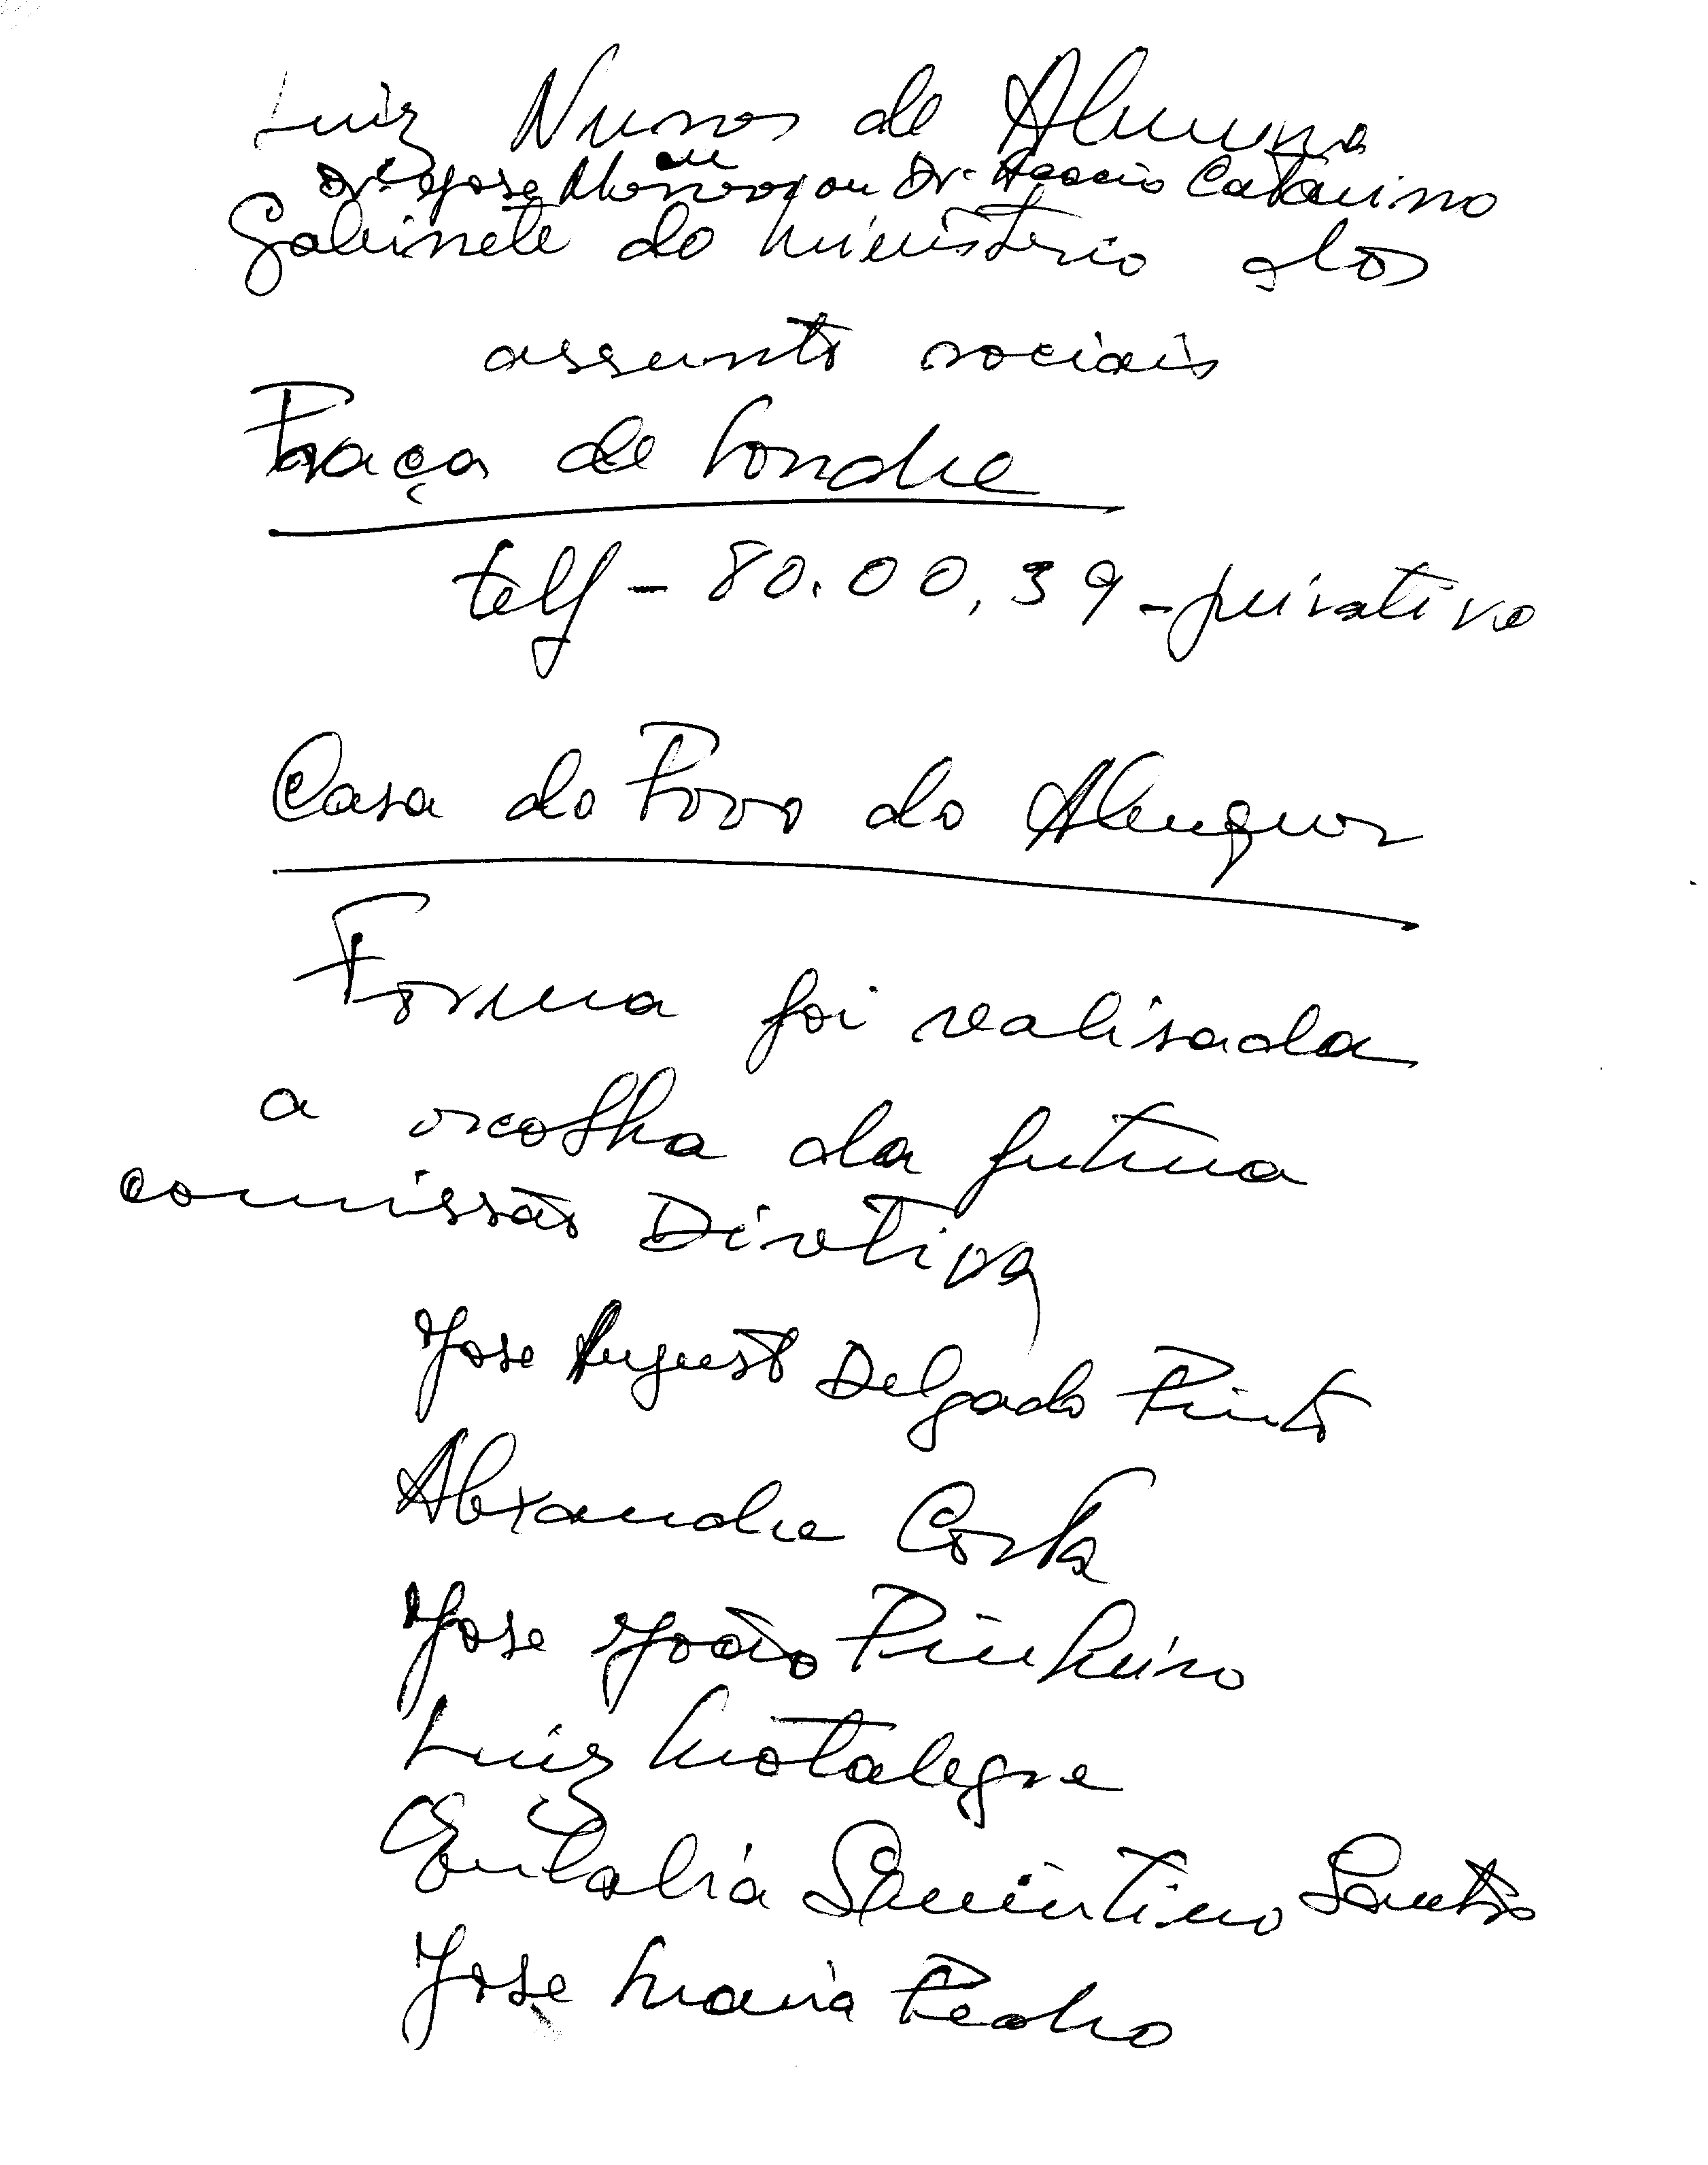 Luiz Nunes de
ou
Dr. Jose ou Dr. Acacio Catarino
Gabinete do ministerio dos
assuntos sociais
Praça de Londre
telf - 80.00.39 - privativo
Casa do Povo do Alenquer
Forma foi realisada
a escolha da futura
comissão Diretiva
Jose Augusto Delgado Pinto
Alexandre Costa
Jose João Pinheiro
Luiz Motalegre
Eulalia Santos
Jose Maria Pedro